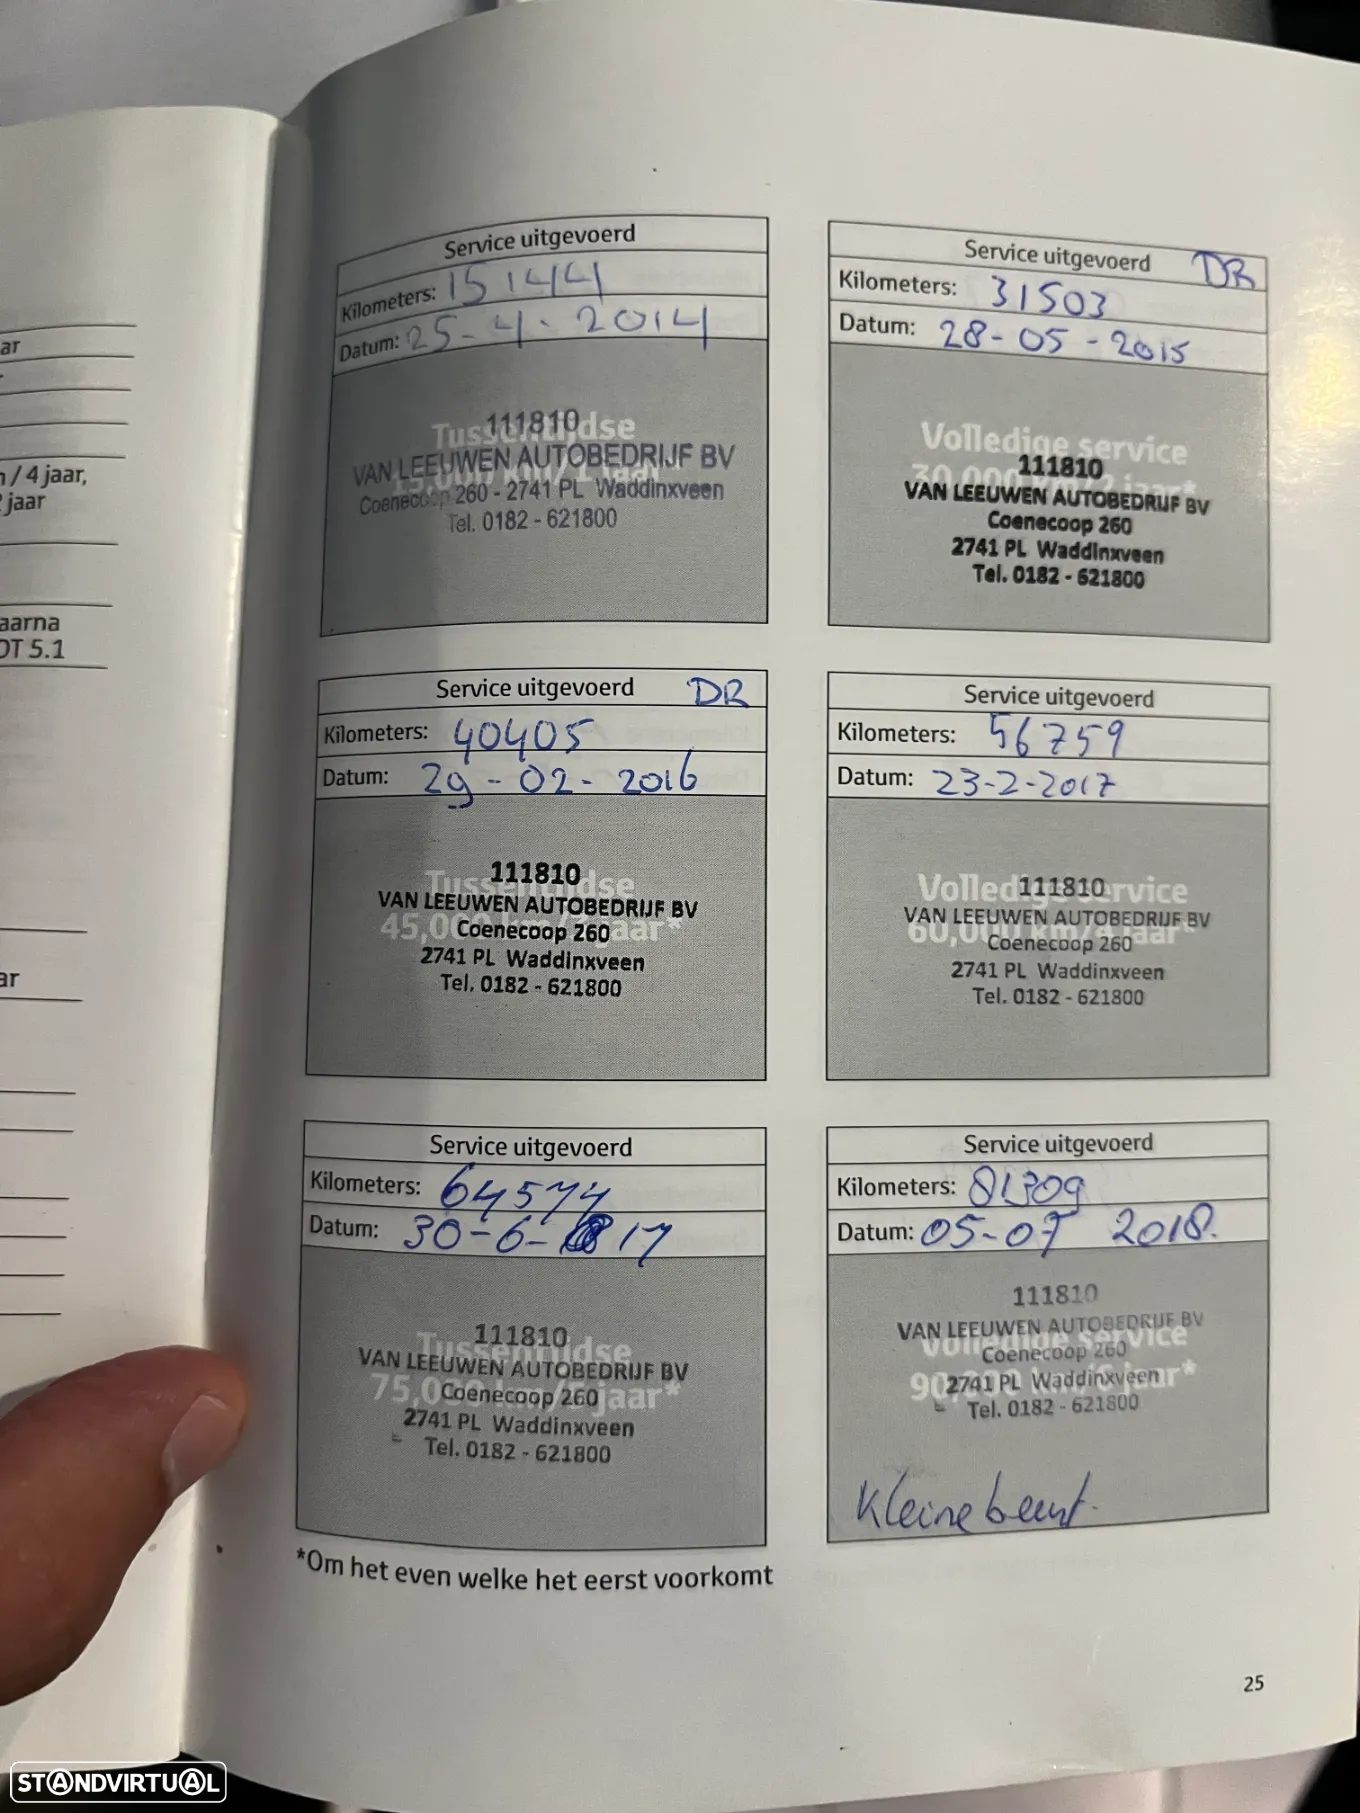 ar
n / 4 jaar,
jaar
aarna
OT 5.1
ar
Service uitgevoerd
Kilometers: 15144
Datum: 25-4-2014
Tussentijdse
111810
VAN LEEUWEN AUTOBEDRIJF BV
Coenecoop 260 - 2741 PL Waddinxveen
Tel. 0182 - 621800
Service uitgevoerd DR
Kilometers: 31503
Datum: 28-05-2015
Volledige service
30,000 km/2 jaar*
111810
VAN LEEUWEN AUTOBEDRIJF BV
Coenecoop 260
2741 PL Waddinxveen
Tel. 0182 - 621800
Service uitgevoerd DR
Kilometers: 40405
Datum: 29-02-2016
Tussentijdse
45,000 km/ jaar*
111810
VAN LEEUWEN AUTOBEDRIJF BV
Coenecoop 260
2741 PL Waddinxveen
Tel. 0182 - 621800
Service uitgevoerd
Kilometers: 56759
Datum: 23-2-2017
Volledige service
60,000 km/4 jaar*
111810
VAN LEEUWEN AUTOBEDRIJF BV
Coenecoop 260
2741 PL Waddinxveen
Tel. 0182 - 621800
Service uitgevoerd
Kilometers: 64574
Datum: 30-6-17
Tussentijdse
75,000 km/5 jaar*
111810
VAN LEEUWEN AUTOBEDRIJF BV
Coenecoop 260
2741 PL Waddinxveen
Tel. 0182 - 621800
Service uitgevoerd
Kilometers: 81309
Datum: 05-07 2018.
Volledige service
90,000 km/6 jaar*
111810
VAN LEEUWEN AUTOBEDRIJF BV
Coenecoop 260
2741 PL Waddinxveen
Tel. 0182 - 621800
Kleine beurt.
*Om het even welke het eerst voorkomt
25
STANDVIRTUAL